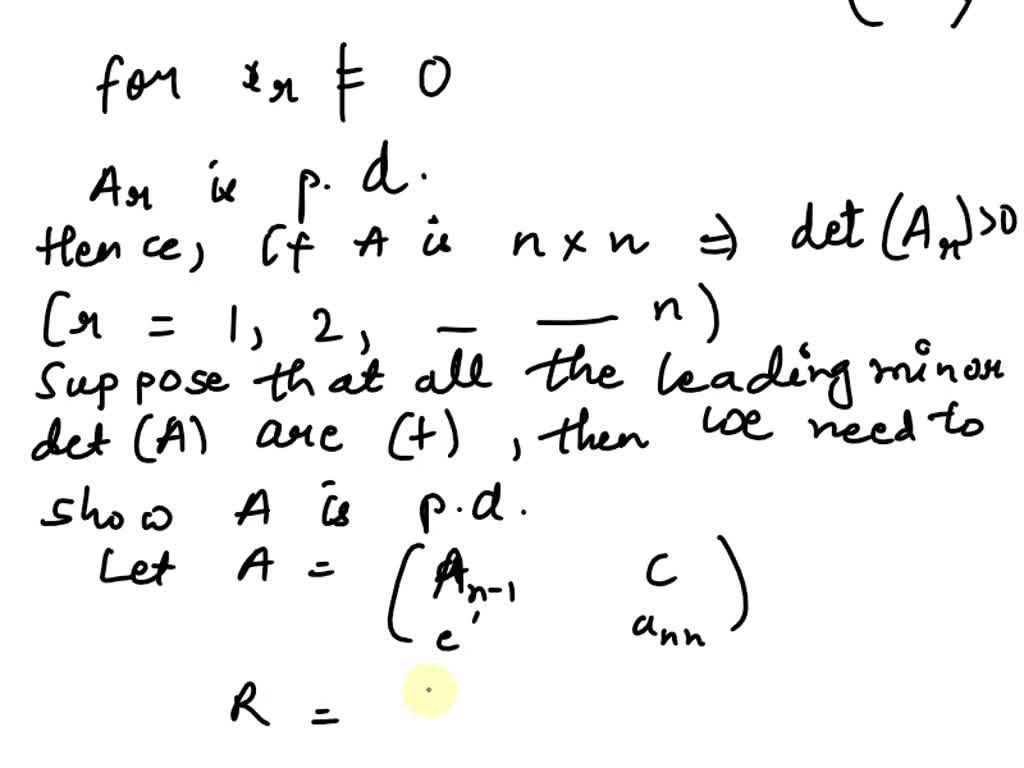 for x_r ≠ 0
A_r is p.d.
Hence, if A is n × n ⇒ det (A_r) >0
(r = 1, 2, _ __ n)
Suppose that all the leading minor
det (A) are (+) , then we need to
show A is p.d.
Let A = ( A_{n-1} C
c' a_{nn} )
R =